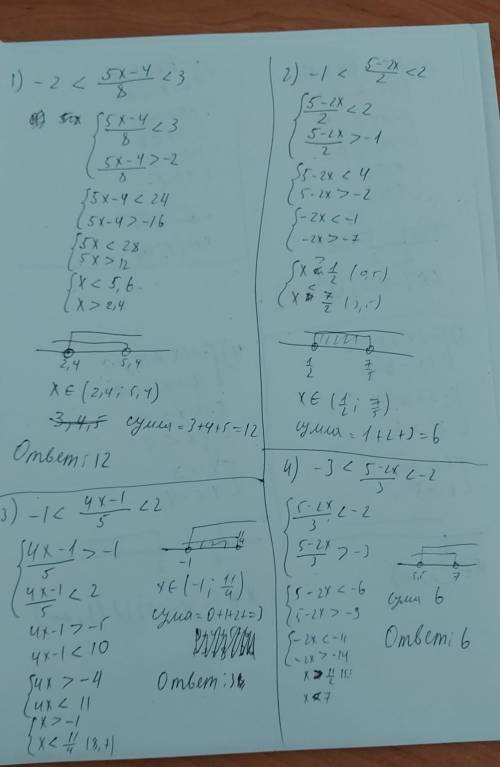 1) -2 < (5x-4)/8 < 3
{ (5x-4)/8 < 3
(5x-4)/8 > -2
{ 5x-4 < 24
5x-4 > -16
{ 5x < 28
5x > 12
{ x < 5,6
x > 2,4
2,4 5,4
x ∈ (2,4; 5,4)
3,4,5 сумма = 3+4+5=12
Ответ: 12
2) -1 < (5-2x)/2 < 2
{ (5-2x)/2 < 2
(5-2x)/2 > -1
{ 5-2x < 4
5-2x > -2
{ -2x < -1
-2x > -7
{ x > 1/2 (0,5)
x < 7/2 (3,5)
1/2 7/5
x ∈ (1/2; 7/5)
сумма = 1+2+3=6
3) -1 < (4x-1)/5 < 2
{ (4x-1)/5 > -1
(4x-1)/5 < 2
4x-1 > -5
4x-1 < 10
{ 4x > -4
4x < 11
{ x > -1
x < 11/4
-1 11/4
x ∈ (-1; 11/4)
сума = 0+1+2=3
Ответ: 3
4) -3 < (5-2x)/3 < -2
{ (5-2x)/3 < -2
(5-2x)/3 > -3
{ 5-2x < -6
5-2x > -9
{ -2x < -11
-2x > -14
x > 11/2
x < 7
5,5 7
сума 6
Ответ: 6